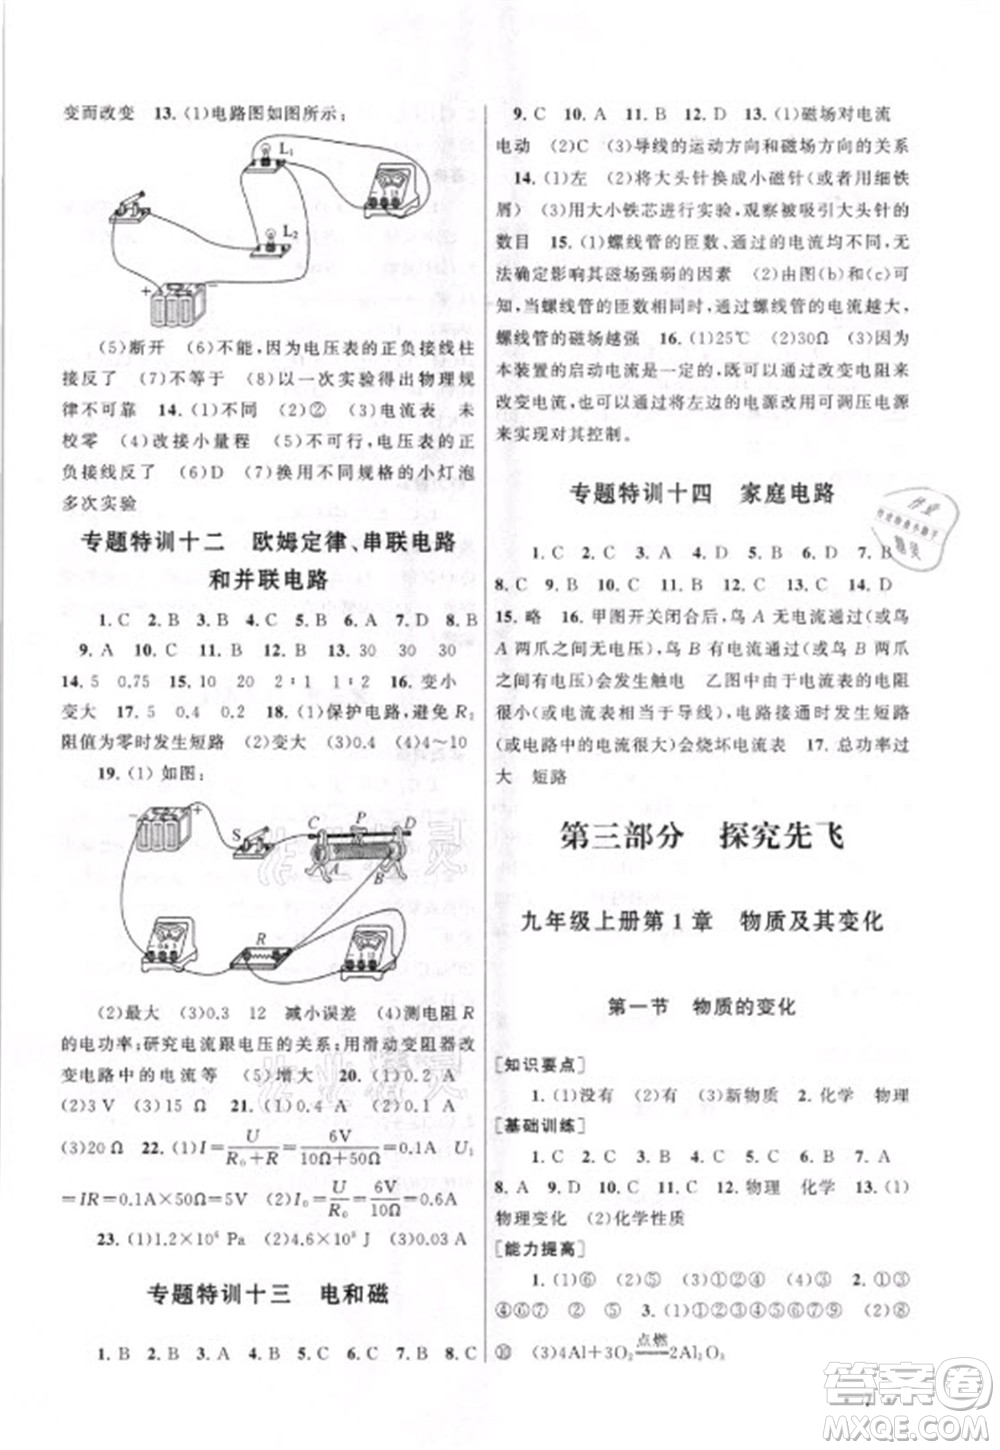 变而改变　13. (1)电路图如图所示;
L₁
L₂
+
−
(5)断开　(6)不能,因为电压表的正负接线柱
接反了　(7)不等于　(8)以一次实验得出物理规
律不可靠　14. (1)不同　(2)②　(3)电流表　未
校零　(4)改接小量程　(5)不可行,电压表的正
负接线反了　(6)D　(7)换用不同规格的小灯泡
多次实验
专题特训十二　欧姆定律、串联电路
和并联电路
1. C　2. B　3. B　4. C　5. C　6. A　7. D　8. B
9. A　10. C　11. B　12. B　13. 30　30　30
14. 5　0.75　15. 10　20　2∶1　1∶1　16. 变小
变大　17. 5　0.4　0.2　18. (1)保护电路,避免 R₂
阻值为零时发生短路　(2)变大　(3)0.4　(4)4～10
19. (1) 如图:
−
+
S
C
P
D
A
B
R
(2)最大　(3)0.3　12　减小误差　(4)测电阻 R
的电功率;研究电流跟电压的关系;用滑动变阻器改
变电路中的电流等　(5)增大　20. (1)0.2 A
(2)3 V　(3)2 W　21. (1)0.4 A　(2)4 V
(3)20 Ω　22. (1)I=U/(R₀+R)=6V/(10Ω+50Ω)=0.1A　U₁
=IR=0.1A×50Ω=5V　(2)I=U/R₀=6V/10Ω=0.6A
23. (1)1.2×10⁶ Pa　(2)4.6×10⁸ J　(3)0.03 A
专题特训十三　电和磁
1. B　2. B　3. A　4. B　5. C　6. A　7. B　8. C
9. C　10. A　11. B　12. D　13. (1)磁场对电流
电动　(2)C　(3)导线的运动方向和磁场方向的关系
14. (1)左　(2)将大头针换成小磁针(或者用细铁
屑)　(3)用大小铁芯进行实验,观察被吸引大头针的
数目　15. (1)螺线管的匝数、通过的电流均不同,无
法确定影响其磁场强弱的因素　(2)由图(b)和(c)可
知,当螺线管的匝数相同时,通过螺线管的电流越大,
螺线管的磁场越强　16. (1)25℃　(2)30Ω　(3)因为
本装置的启动电流是一定的,可以通过改变电阻来
改变电流,也可以通过将左边的电源改用可调压电源
来实现对其控制。
专题特训十四　家庭电路
1. C　2. D　3. B　4. A　5. D　6. B　7. B
8. C　9. D　10. D　11. C　12. C　13. C　14. D
15. 略　16. 甲图开关闭合后,鸟 A 无电流流过(或鸟
A 两爪之间无电压);鸟 B 有电流流过(或鸟 B 两爪
之间有电压),会发生触电　乙图中电流表的电阻
很小(或电流表相当于导线),电路接通时发生短路
(或电路中的电流很大)会烧坏电流表　17. 总功率过
大　短路
第三部分　探究先飞
九年级上册第 1 章　物质及其变化
第一节　物质的变化
[知识要点]
1. (1)没有　(2)有　(3)新物质　2. 化学　物理
[基础训练]
1. C　2. C　3. C　4. B　5. B　6. B　7. A
8. A　9. D　10. A　11. A　12. 物理　化学　13. (1)
物理变化　(2)化学性质
[能力提高]
答案圈